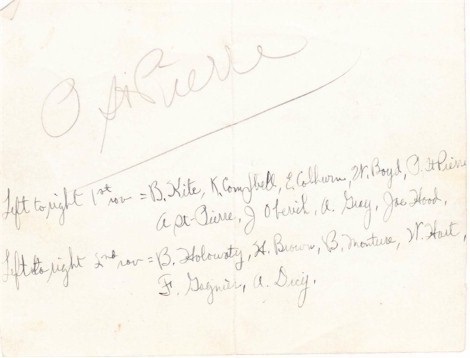 P St Pierre
Left to right 1st row = B. Kite, K. Campbell, E. Colburn, W. Boyd, P. St Pierre
A St-Pierre, J Oberik, A. Gray, Joe Hood,
Left to right 2nd row = B. Holowaty, H. Brown, B. Monteua, W. Hart,
F. Gagnier, A. Dicy.